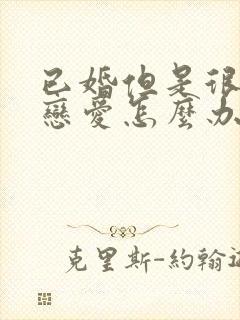 已婚但是很
戀愛怎麼办
克里斯-約翰遜